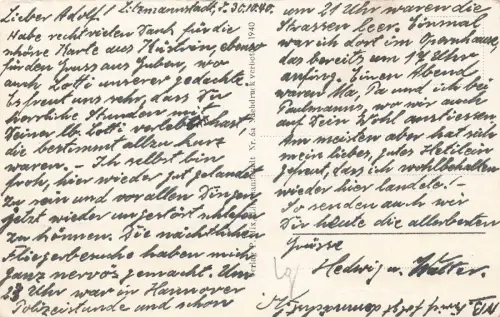 Lieber Adolf! Litzmannstadt, d. 30.10.40.
Habe recht vielen Dank für die
schöne Karte aus Küstrin, ebenso
für den Gruss aus Guben, wo
auch Lotti unserer gedachte.
Es freut uns sehr, dass Du
herrliche Stunden mit
Deiner lb. Lotti verlebt hast,
die bestimmt allzu kurz
waren. – Ich selbst bin
froh, hier wieder gut gelandet
zu sein und vor allen Dingen
jetzt wieder ungestört schlafen
zu können. Die nächtlichen
Fliegerbesuche haben mich
ganz nervös gemacht. Um
23 Uhr war in Hannover
Polizeistunde und schon
um 21 Uhr waren die
Strassen leer. Einmal
war ich dort im Opernhause,
das bereits um 17 Uhr
anfing. Einen Abend
waren Ma, Pa und ich bei
Paulmanns, wo wir auch
auf Dein Wohl anstiessen.
Am meisten aber hat sich
mein liebes, gutes
gefreut, dass ich wohlbehalten
wieder hier landete! –
So senden auch wir
Dir heute die allerbesten
Grüsse
Hedwig u. Walter.
Nr. 64 Nachdruck verboten 1940